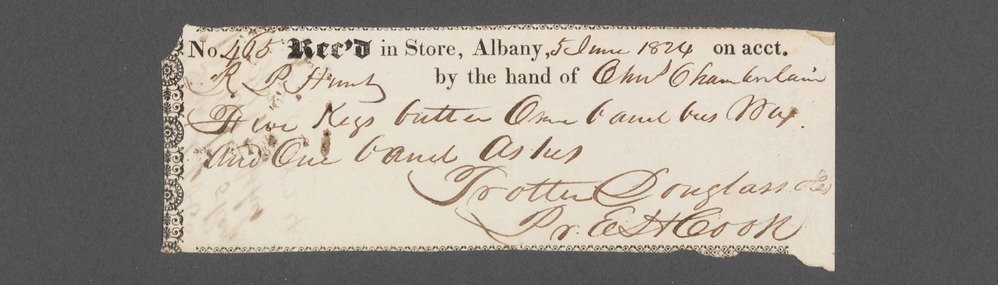 No. 405 Rec'd in Store, Albany, 5 June 1824 on acct.
R. P. Hunt by the hand of Chas Chamberlain
Five Kegs butter One band bees Wax.
And One band Ashes
Trotter Douglass
Pr. E D H Cook